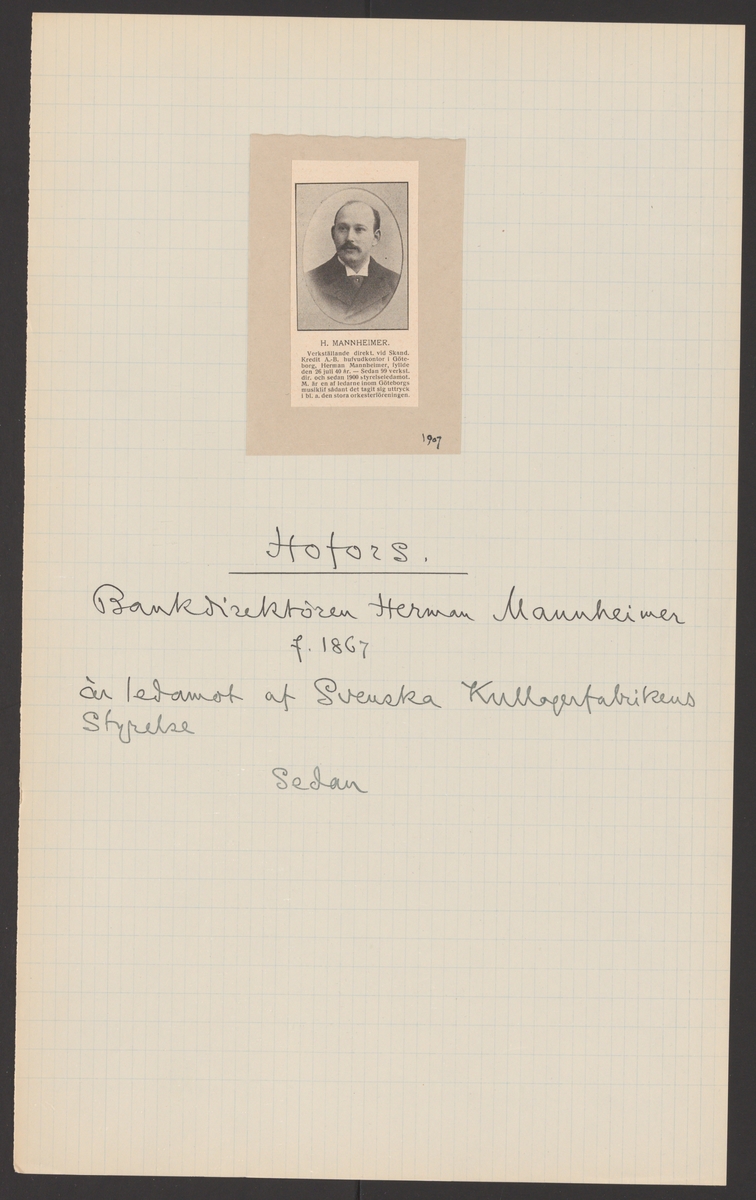 H. MANNHEIMER.
Verkställande direkt. vid Skand.
Kredit A.-B. hufvudkontor i Göte-
borg, Herman Mannheimer, fyllde
den 26 juli 40 år. — Sedan 99 verkst.
dir. och sedan 1900 styrelseledamot.
M. är en af ledarne inom Göteborgs
musiklif sådant det tagit sig uttryck
i bl. a. den stora orkesterföreningen.
1907
Hofors.
Bankdirektören Herman Mannheimer
f. 1867
är ledamot af Svenska Kullagerfabrikens
Styrelse
Sedan